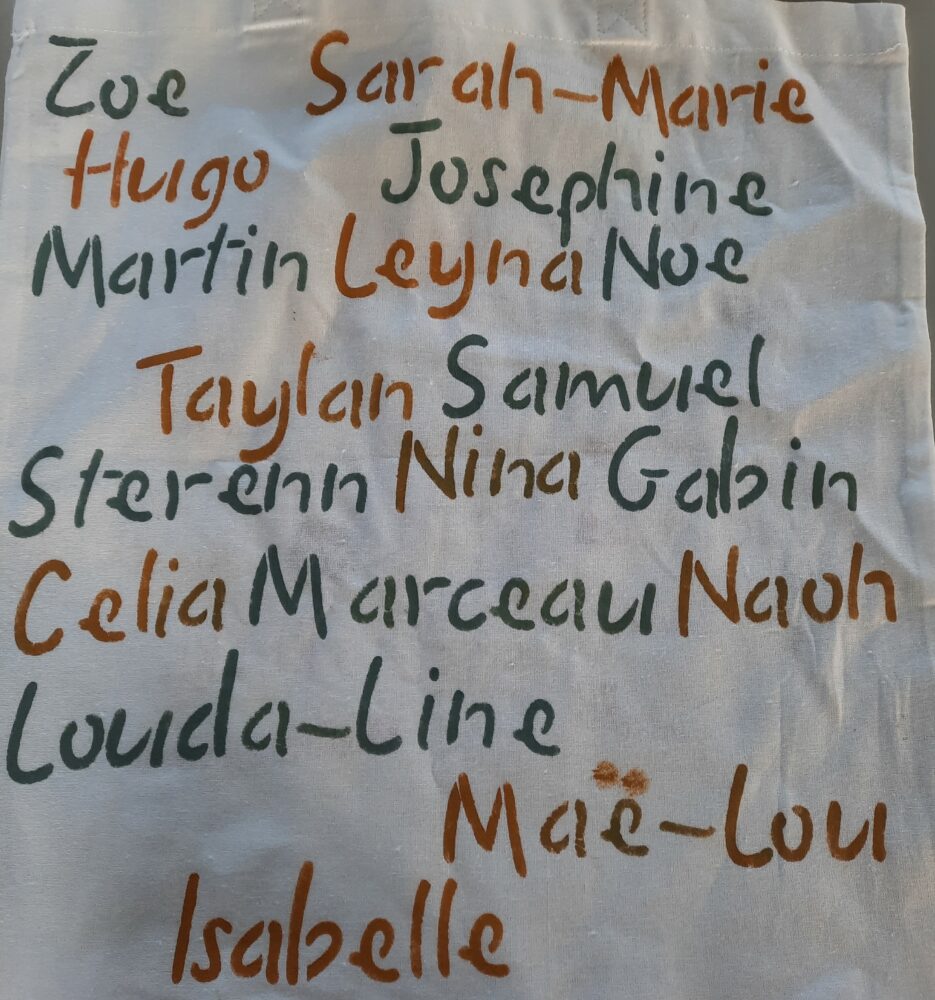 Zoe Sarah-Marie
Hugo Josephine
Martin Leyna Noe
Taylan Samuel
Sterenn Nina Gabin
Celia Marceau Naoh
Louda-Line
Maë-Lou
Isabelle